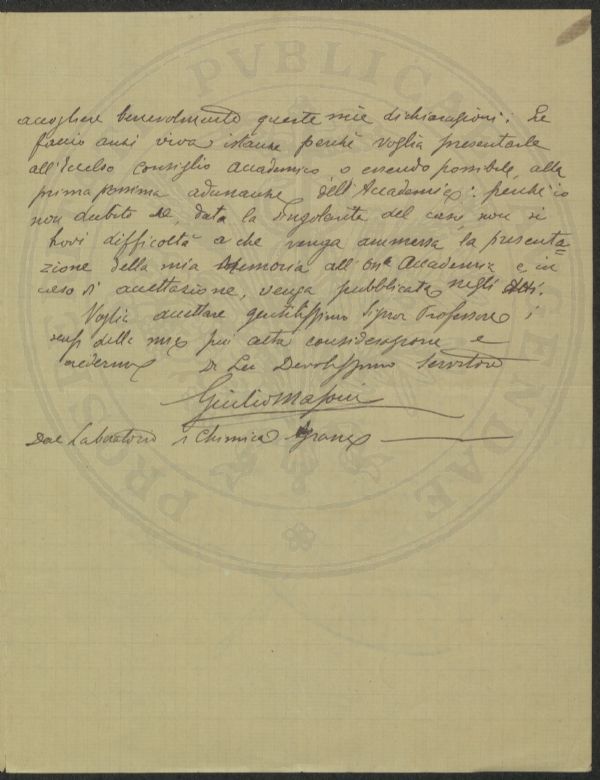 accogliere benevolmente queste mie dichiarazioni; Le
faccio anzi viva istanza perchè voglia presentarle
all'Eccelso Consiglio Accademico o essendo possibile, alla
prima prossima adunanza dell'Accademia: perchè io
non dubito che, data la singolarità del caso, non si
trovi difficoltà a che venga ammessa la presenta=
zione della mia Memoria all'On. Accademia e, in
caso di accettazione, venga pubblicata negli Atti.
Voglia accettare gentilissimo Signor Professore i
sensi della mia più alta considerazione e
credermi Di Lei Devotissimo Servitore
Giulio Masoni
Dal Laboratorio di Chimica Agraria
PVBLICA